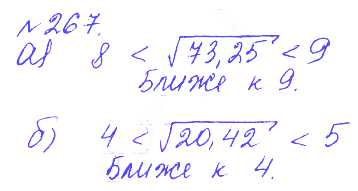 №267.
а) 8 < √73,25 < 9
Ближе к 9.
б) 4 < √20,42 < 5
Ближе к 4.